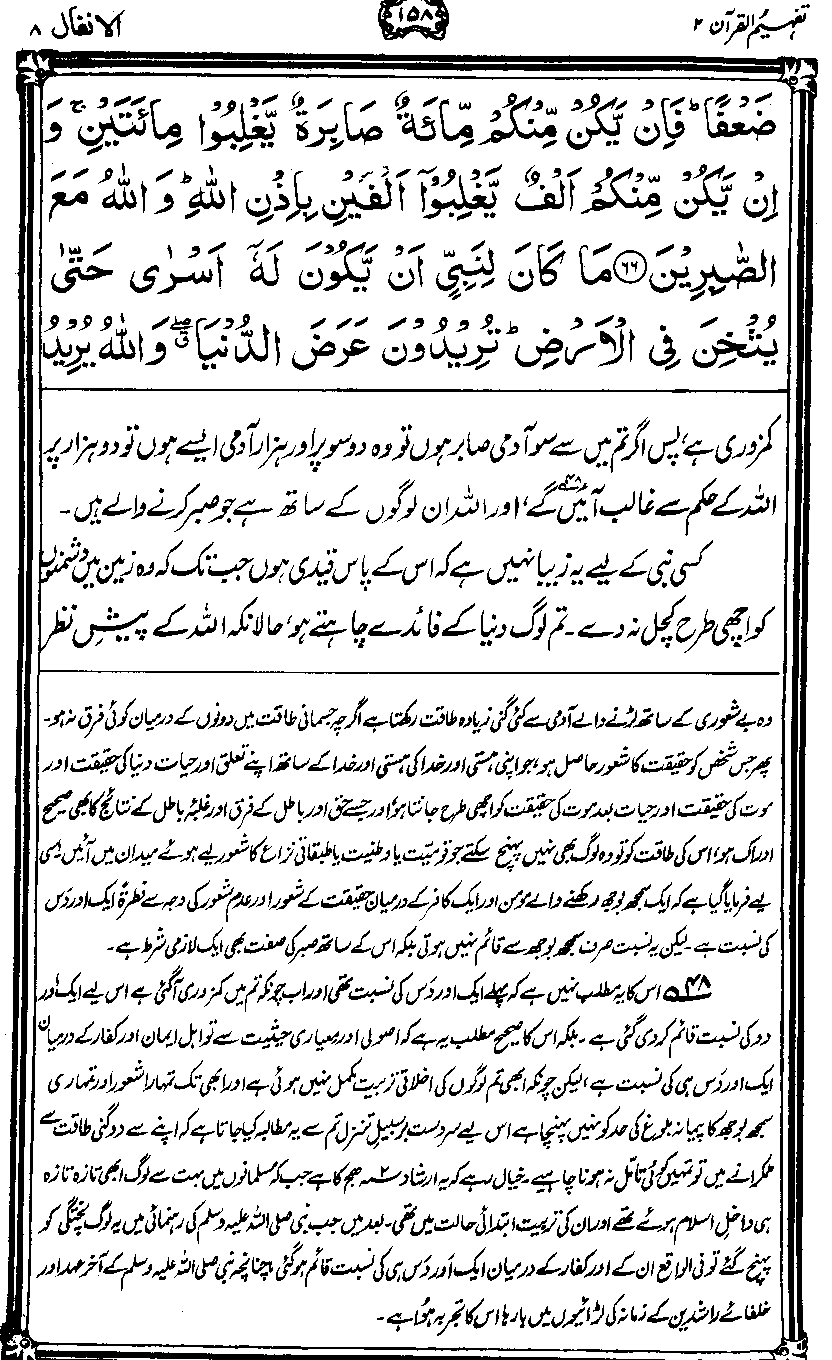 تفہیم القرآن ۲
۱۵۸
الانفال ۸
ضَعْفًا ؕ فَاِنْ يَّكُنْ مِّنْكُمْ مِّائَةٌ صَابِرَةٌ يَّغْلِبُوْا مِائَتَيْنِ ۚ وَ
اِنْ يَّكُنْ مِّنْكُمْ اَلْفٌ يَّغْلِبُوْۤا اَلْفَيْنِ بِاِذْنِ اللّٰهِ ؕ وَ اللّٰهُ مَعَ
الصّٰبِرِيْنَ ﴿۶۶﴾ مَا كَانَ لِنَبِيٍّ اَنْ يَّكُوْنَ لَهٗۤ اَسْرٰى حَتّٰى
يُثْخِنَ فِي الْاَرْضِ ؕ تُرِيْدُوْنَ عَرَضَ الدُّنْيَا ۖۗ وَ اللّٰهُ يُرِيْدُ
کمزوری ہے، پس اگر تم میں سے سو آدمی صابر ہوں تو وہ دو سو پر اور ہزار آدمی ایسے ہوں تو دو ہزار پر
اللہ کے حکم سے غالب آئیں گے،۴۸ اور اللہ ان لوگوں کے ساتھ ہے جو صبر کرنے والے ہیں۔
کسی نبی کے لیے یہ زیبا نہیں ہے کہ اس کے پاس قیدی ہوں جب تک کہ وہ زمین میں دشمنوں
کو اچھی طرح کچل نہ دے۔ تم لوگ دنیا کے فائدے چاہتے ہو، حالانکہ اللہ کے پیشِ نظر
وہ بے شعوری کے ساتھ لڑنے والے آدمی سے کئی گنی زیادہ طاقت رکھتا ہے اگرچہ جسمانی طاقت میں دونوں کے درمیان کوئی فرق نہ ہو۔
پھر جس شخص کو حقیقت کا شعور حاصل ہو، جو اپنی ہستی اور خدا کی ہستی اور خدا کے ساتھ اپنے تعلق اور حیات دنیا کی حقیقت اور
موت کی حقیقت اور حیات بعد موت کی حقیقت کو اچھی طرح جانتا ہو اور جسے حق اور باطل کے فرق اور غلبۂ باطل کے نتائج کا بھی صحیح
ادراک ہو، اس کی طاقت کو تو وہ لوگ بھی نہیں پہنچ سکتے جو قومیّت یا وطنیت یا طبقاتی نزاع کا شعور لیے ہوئے میدان میں آئیں۔ اسی
لیے فرمایا گیا ہے کہ ایک سمجھ بوجھ رکھنے والے مومن اور ایک کافر کے درمیان حقیقت کے شعور اور عدم شعور کی وجہ سے فطرۃً ایک اور دَس
کی نسبت ہے۔ لیکن یہ نسبت صرف سمجھ بوجھ سے قائم نہیں ہوتی بلکہ اس کے ساتھ صبر کی صفت بھی ایک لازمی شرط ہے۔
۴۸ اس کا یہ مطلب نہیں ہے کہ پہلے ایک اور دَس کی نسبت تھی اور اب چونکہ تم میں کمزوری آگئی ہے اس لیے ایک اور
دو کی نسبت قائم کر دی گئی ہے۔ بلکہ اس کا صحیح مطلب یہ ہے کہ اصولی اور معیاری حیثیت سے تو اہل ایمان اور کفار کے درمیان
ایک اور دَس ہی کی نسبت ہے، لیکن چونکہ ابھی تم لوگوں کی اخلاقی تربیت مکمل نہیں ہوئی ہے اور ابھی تک تمہارا شعور اور تمہاری
سمجھ بوجھ کا پیمانہ بلوغ کی حد کو نہیں پہنچا ہے اس لیے سردست برسبیل تنزل تم سے یہ مطالبہ کیا جاتا ہے کہ اپنے سے دوگنی طاقت سے
ٹکرانے میں تو تمہیں کوئی تامّل نہ ہونا چاہیے۔ خیال رہے کہ یہ ارشاد ۲ھ کا ہے جب کہ مسلمانوں میں بہت سے لوگ ابھی تازہ تازہ
ہی داخل اسلام ہوئے تھے اور ان کی تربیت ابتدائی حالت میں تھی۔ بعد میں جب نبی صلی اللہ علیہ وسلم کی رہنمائی میں یہ لوگ پختگی کو
پہنچ گئے تو فی الواقع ان کے اور کفار کے درمیان ایک اور دَس ہی کی نسبت قائم ہوگئی، چنانچہ نبی صلی اللہ علیہ وسلم کے آخر عہد اور
خلفائے راشدین کے زمانہ کی لڑائیوں میں بارہا اس کا تجربہ ہوا ہے۔